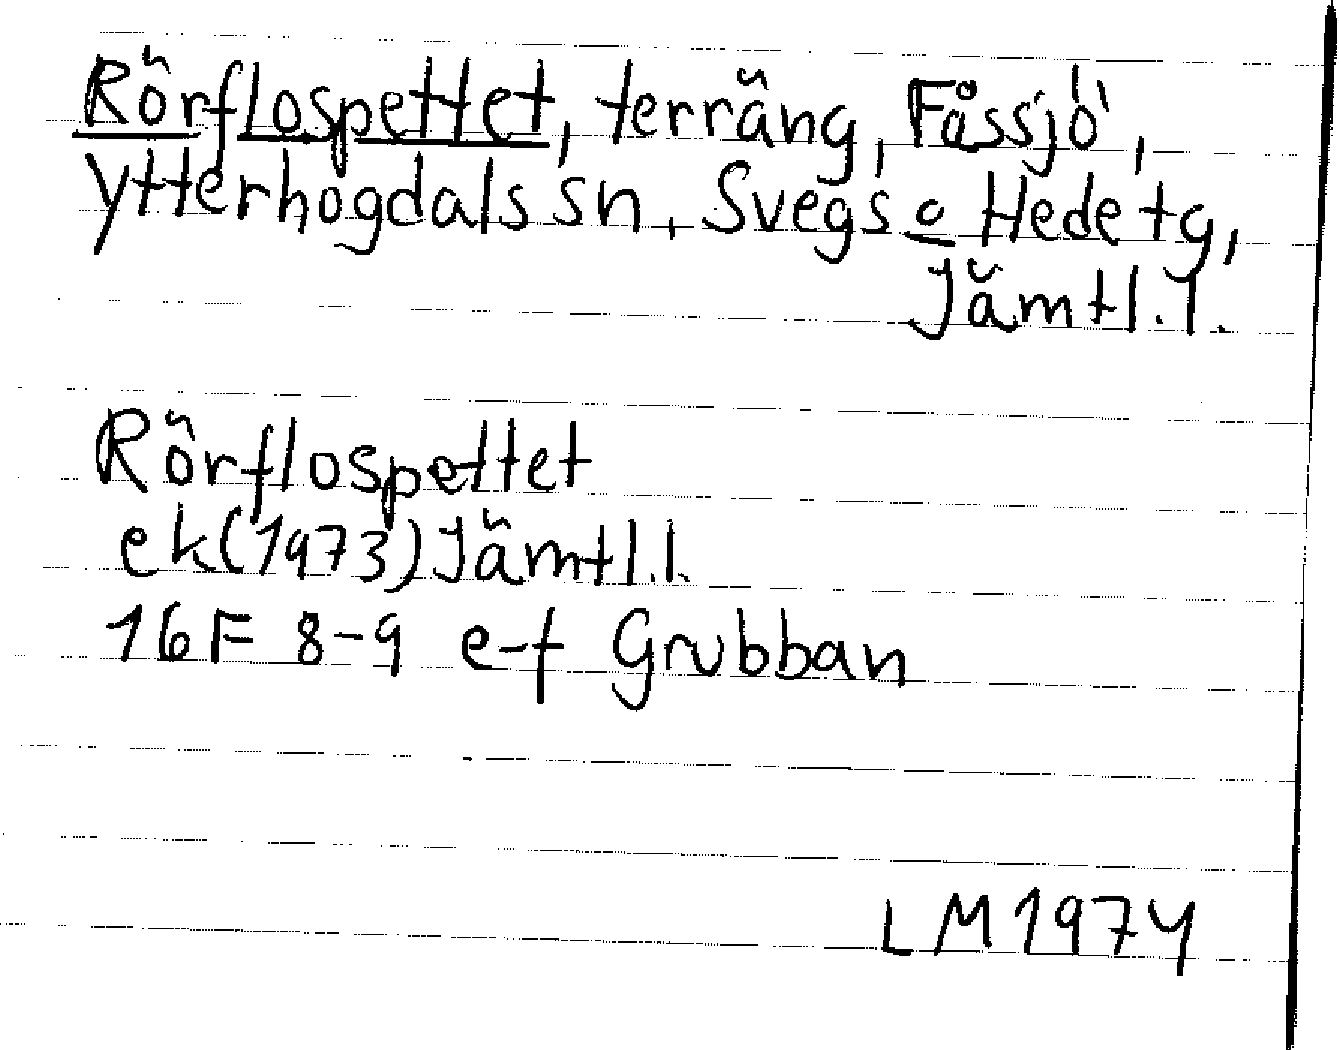 Rörflospettet, terräng, Fåssjö,
Ytterhogdals sn, Svegs o Hede tg,
Jämtl. l.
Rörflospettet
ek (1973) Jämtl. l.
16F 8-9 e-f Grubban
LM 1974